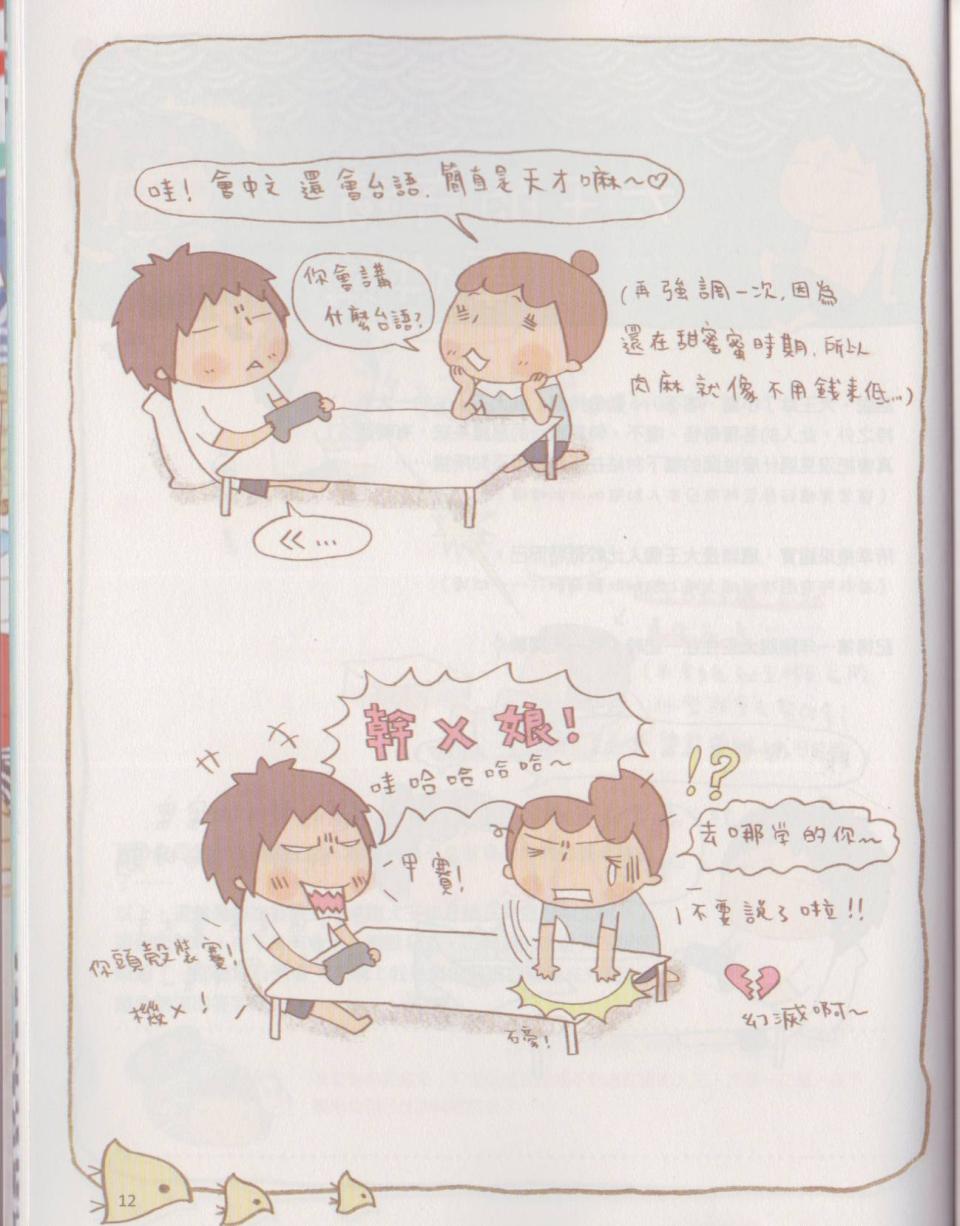 哇! 會中文 還會台語, 簡直是天才嘛~♡
你會講
什麼台語?
(再強調一次,因為
還在甜蜜蜜時期,所以
肉麻就像不用錢來低…)
ㄍ…
幹ㄨ娘!
哇哈哈哈哈~
!?
去哪学的你~
甲賽!
不要說了啦!!
你頭殼裝賽!
機ㄨ!
幻滅啊~
12